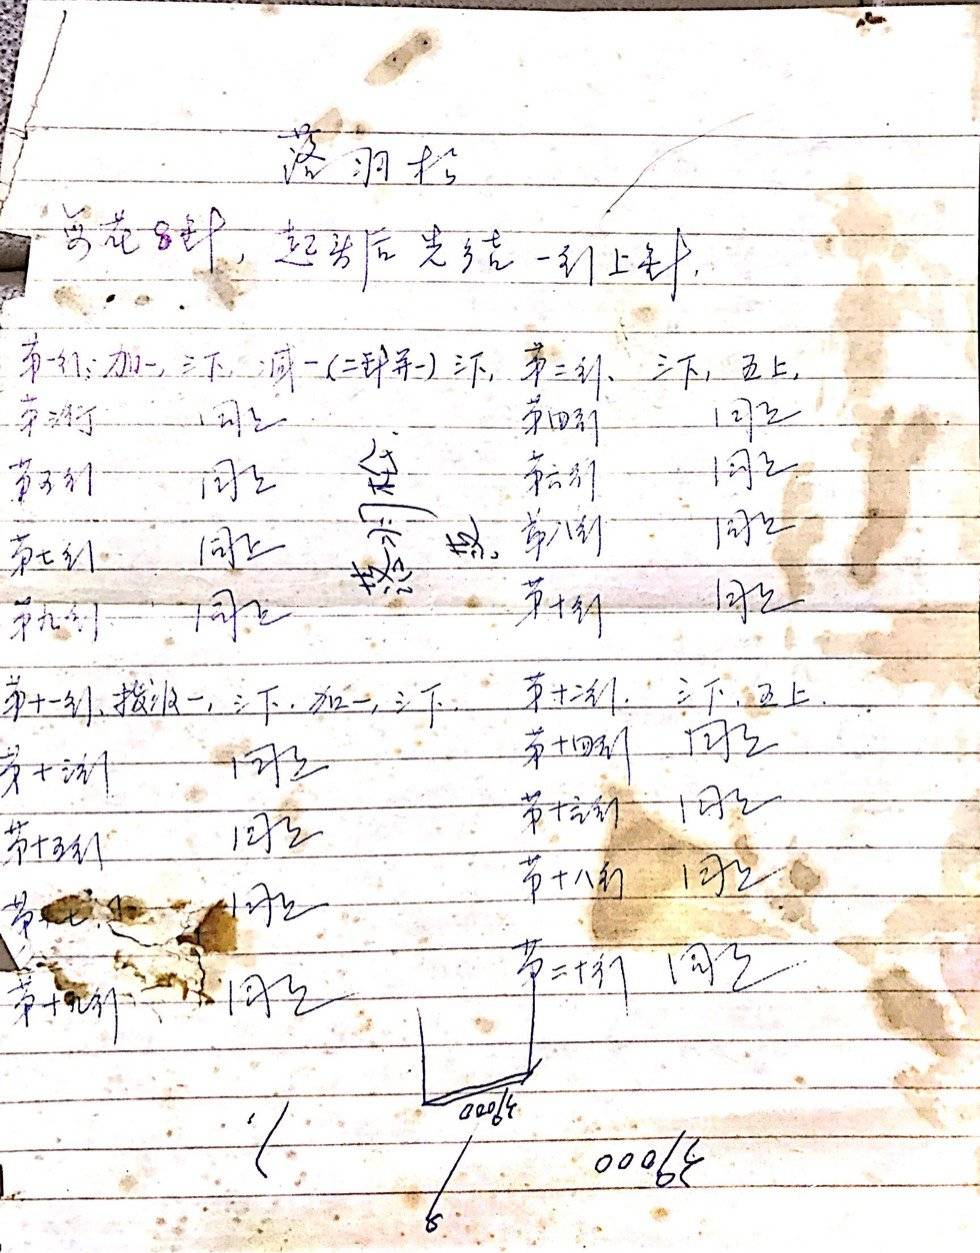 落羽杉
每花8针，起头后先结一行上针.
第一行：加一，三下，减一(二针并一)三下，第二行、三下，五上，
第三行 同上 第四行 同上
第五行 同上 第六行 同上
第七行 同上 第八行 同上
第九行 同上 第十行 同上
第十一行、拨收一，三下．加一，三下． 第十二行．三下．五上．
第十三行 同上 第十四行 同上
第十五行 同上 第十六行 同上
第十七 同上 第十八行 同上
第十九行 同上 第二十行 同上